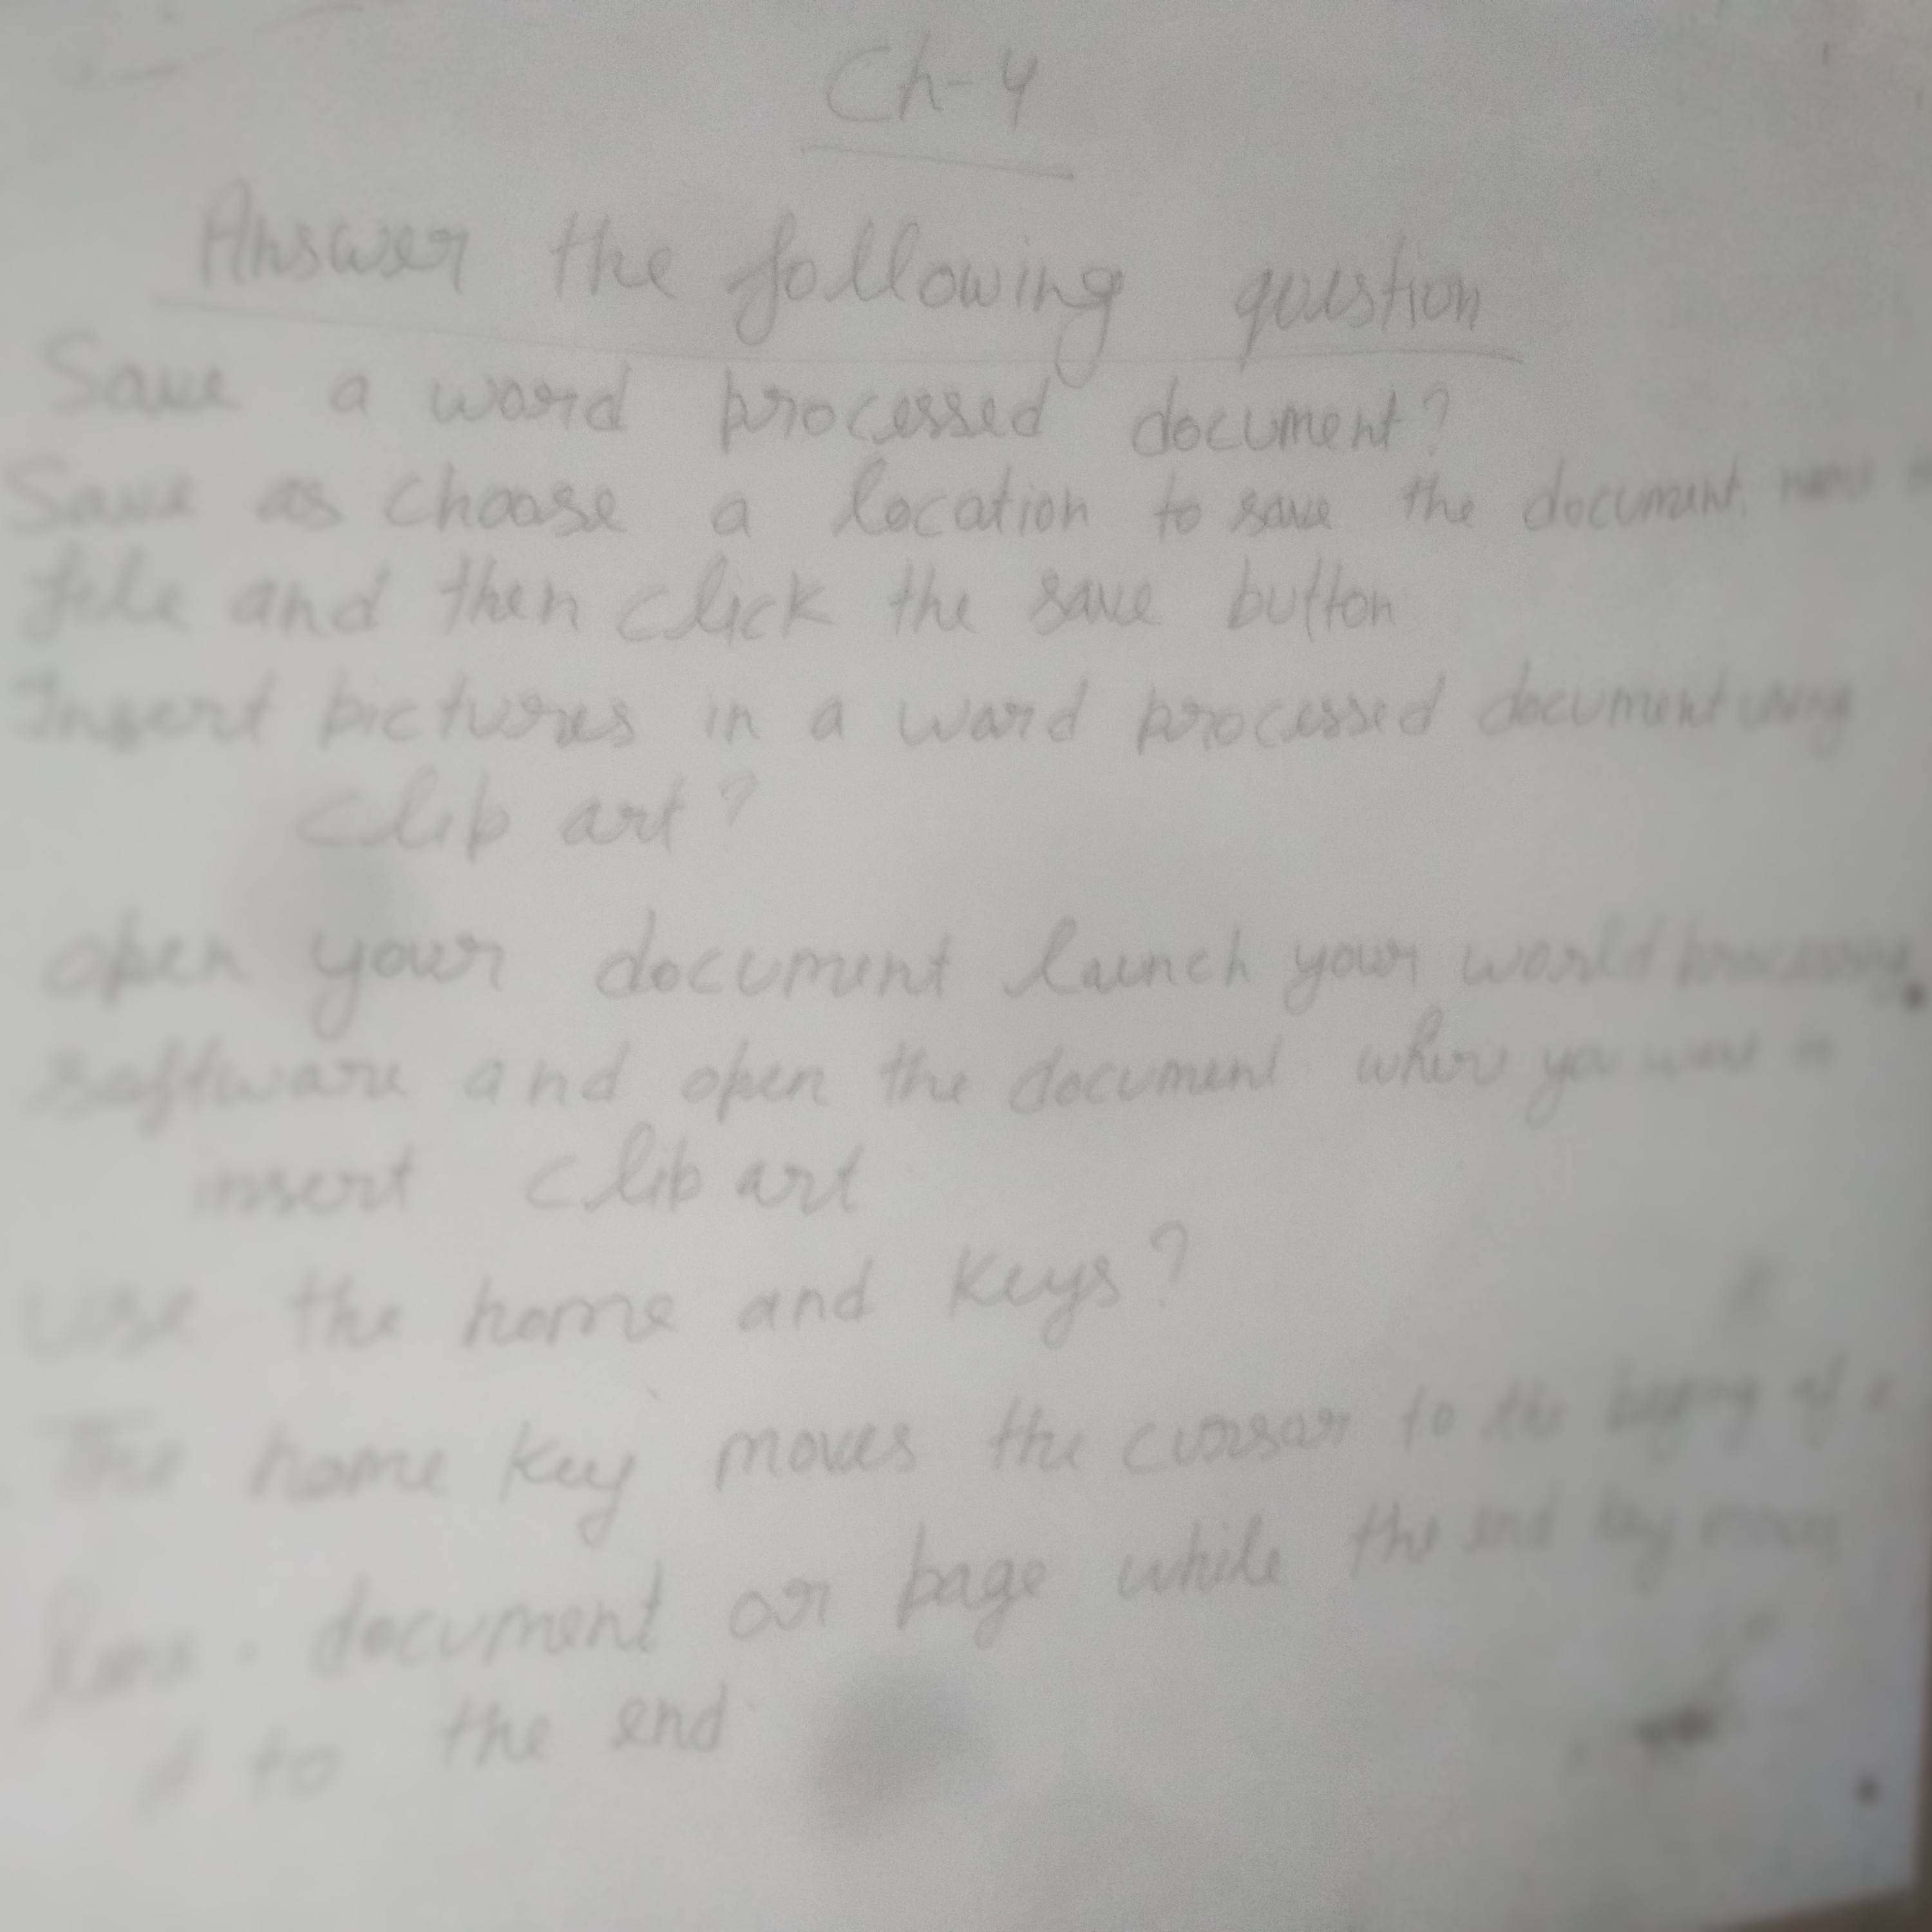 Ch-4
Answer the following question
Save a word processed document?
Save as choose a location to save the document,
file and then click the save button
Insert pictures in a word processed document using
clip art?
open your document launch your world processing
software and open the document where you
insert clip art
use the home and keys?
The home key moves the cursor to the of
document or page while the end key moves
to the end